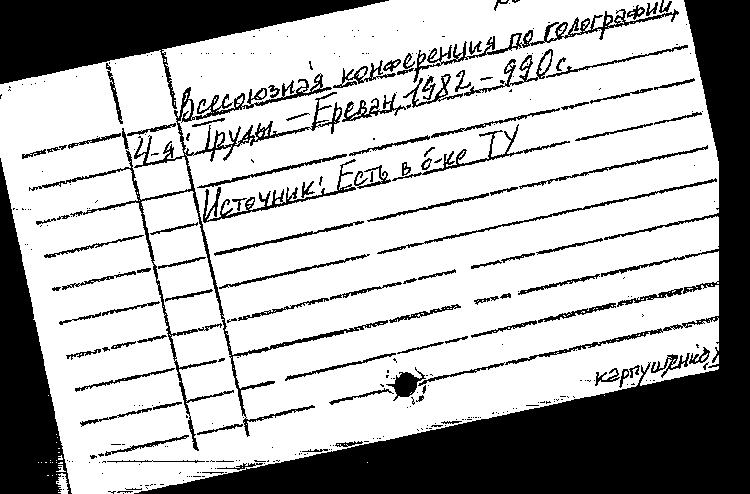 Всесоюзная конференция по голографии,
4-я: Труды. – Ереван, 1982. – 990 с.
Источник: Есть в б-ке ТУ
карпушенко